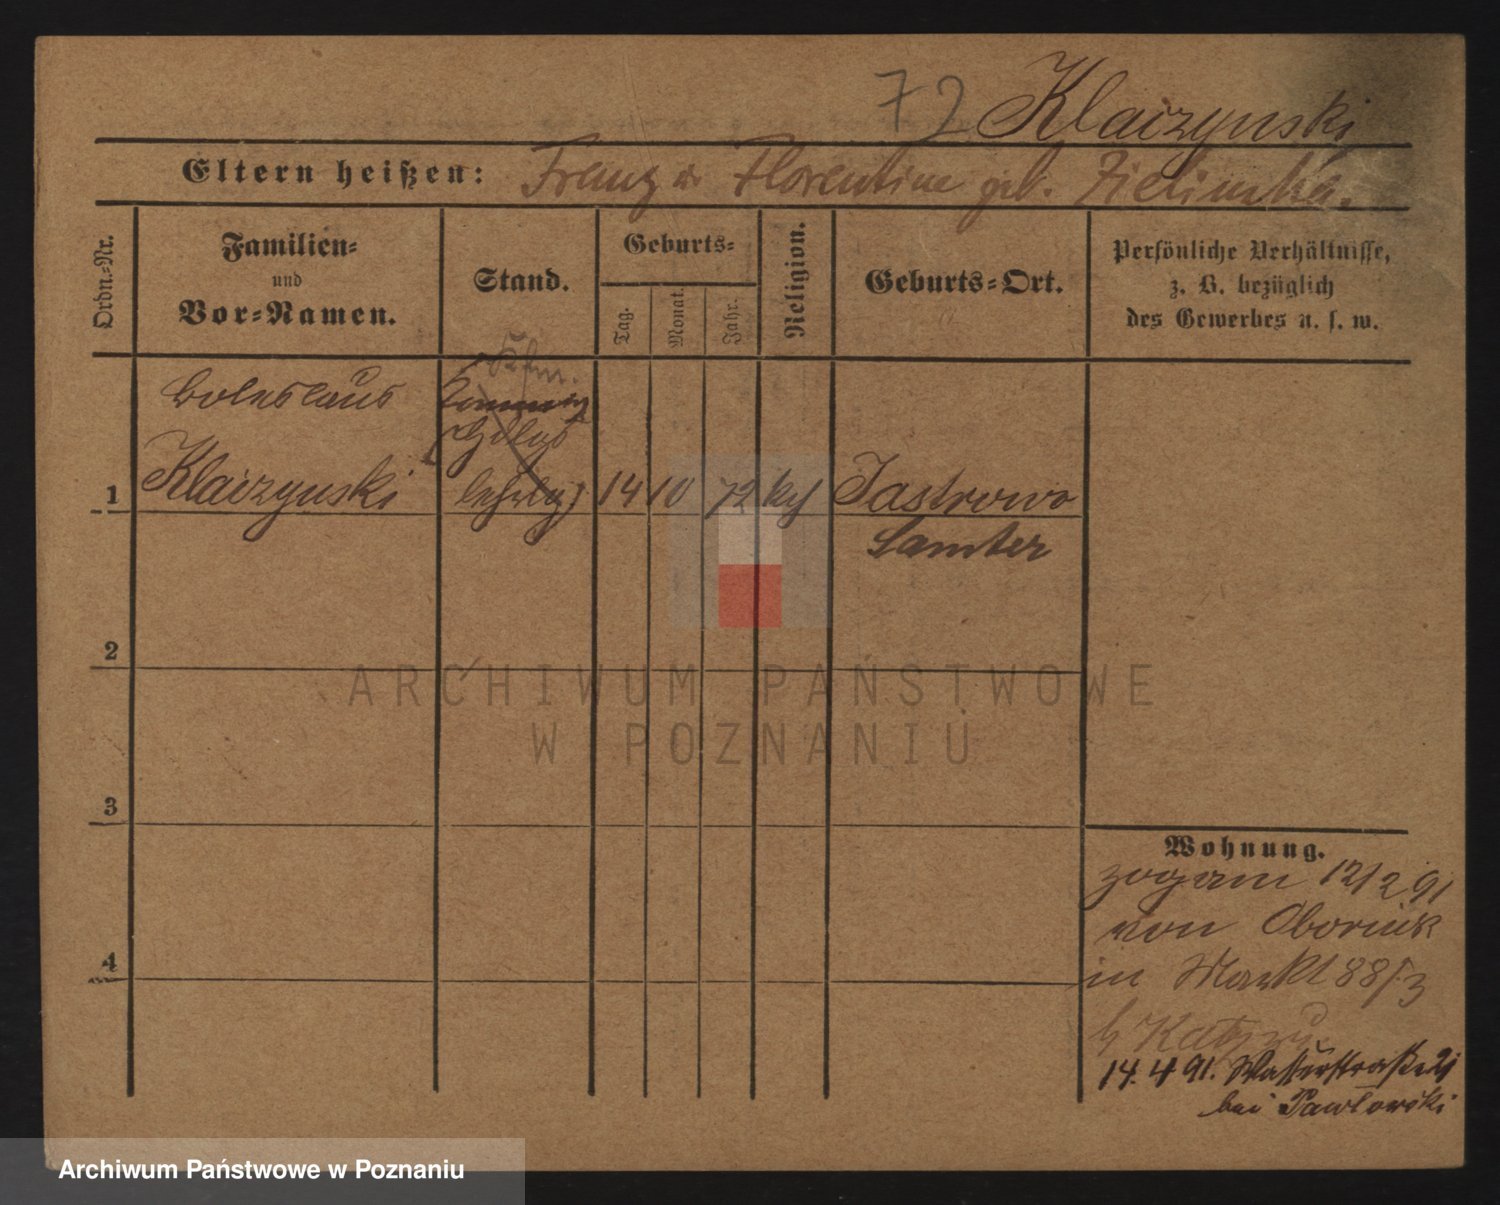 72 Klaczynski
Eltern heißen: Franz u. Florentine geb. Zielinska.
Ordn.-Nr.
Familien-
und
Vor-Namen.
Stand.
Geburts-
Tag.
Monat.
Jahr.
Religion.
Geburts-Ort.
Persönliche Verhältnisse,
z. B. bezüglich
des Gewerbes u. s. w.
Boleslaus
Kfm.
1 Klaczynski
lehrlg 14 10 72 kth Jastrowo
Samter
2
3
4
Wohnung.
zog am 12/2 91
von Obornik
in Markt 88/3
b Katz
14. 4 91. Wasserstraße 21
bei Pawlowski
ARCHIWUM PAŃSTWOWE
W POZNANIU
Archiwum Państwowe w Poznaniu